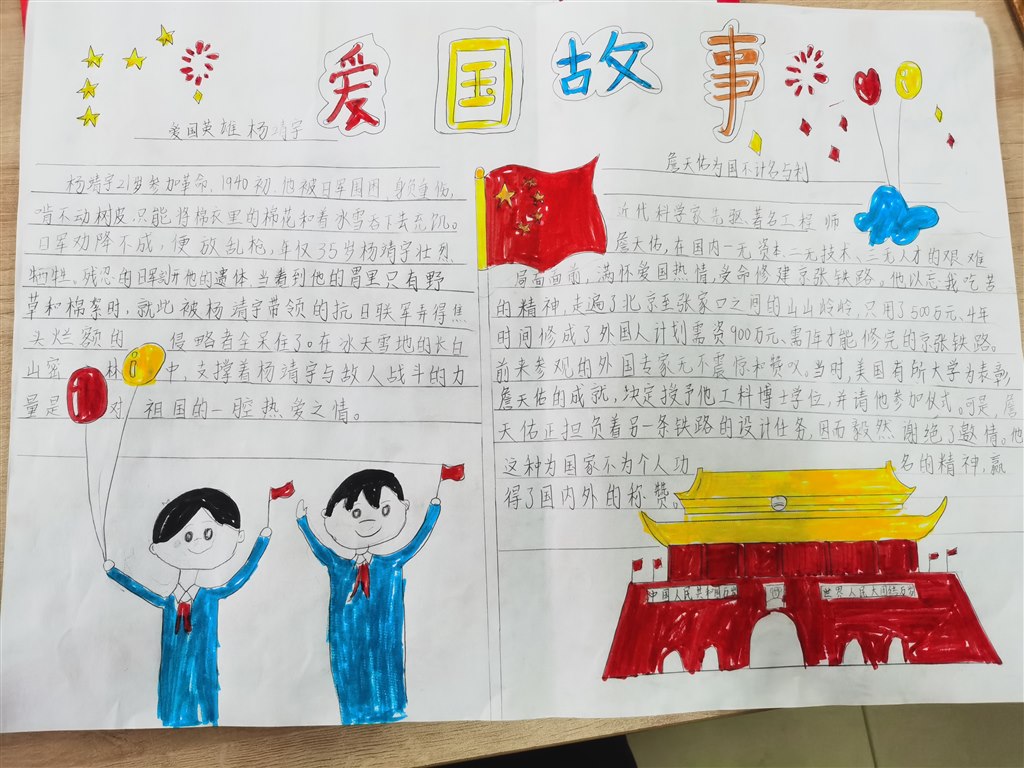 爱国故事
爱国英雄杨靖宇
杨靖宇21岁参加革命,1940初,他被日军围困,身负重伤,
啃不动树皮,只能将棉衣里的棉花和着冰雪吞下去充饥。
日军劝降不成,便放乱枪,年仅35岁杨靖宇壮烈
牺牲。残忍的日军剖开他的遗体,当看到他的胃里只有野
草和棉絮时,就此被杨靖宇带领的抗日联军弄得焦
头烂额的侵略者全呆住了。在冰天雪地的长白
山密林中,支撑着杨靖宇与敌人战斗的力
量是对祖国的一腔热爱之情。
詹天佑为国不计名与利
近代科学家先驱、著名工程师
詹天佑,在国内一无资本、二无技术、三无人才的艰难
局面面前,满怀爱国热情,受命修建京张铁路。他以忘我吃苦
的精神,走遍了北京至张家口之间的山山岭岭,只用了500万元、4年
时间修成了外国人计划需资900万元、需7年才能修完的京张铁路。
前来参观的外国专家无不震惊和赞叹。当时,美国有所大学为表彰
詹天佑的成就,决定授予他工科博士学位,并请他参加仪式。可是,詹
天佑正担负着另一条铁路的设计任务,因而毅然谢绝了邀情。他
这种为国家不为个人功名的精神,赢
得了国内外的称赞。
中国人民共和国万岁
世界人民大团结万岁